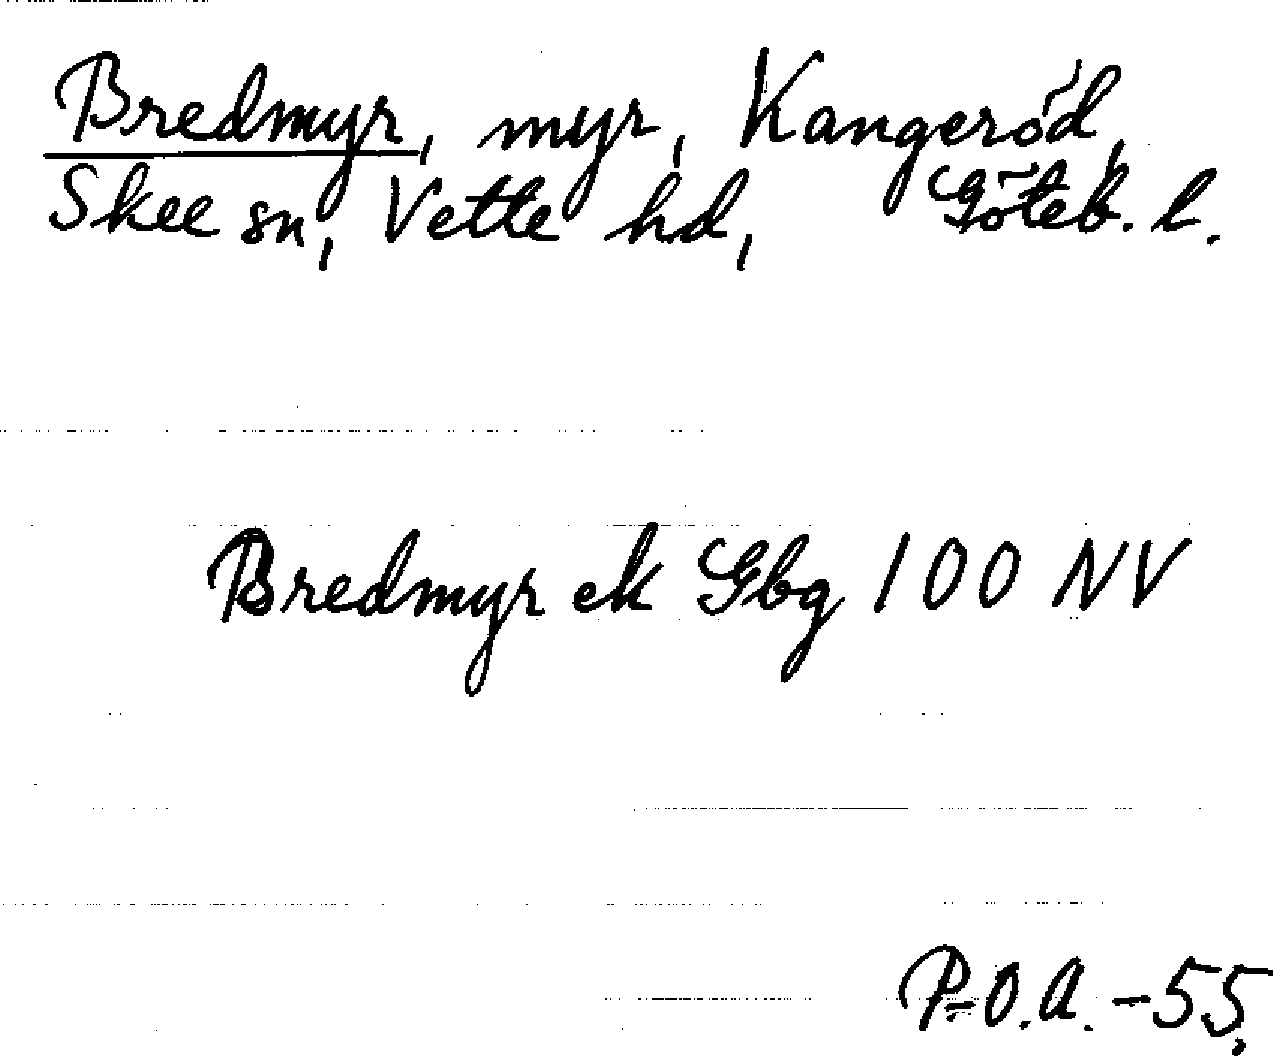 Bredmyr, myr, Kangeröd,
Skee sn, Vette hd, Göteb. l.
Bredmyr ek Gbg 100 NV
P-O.A. -55.